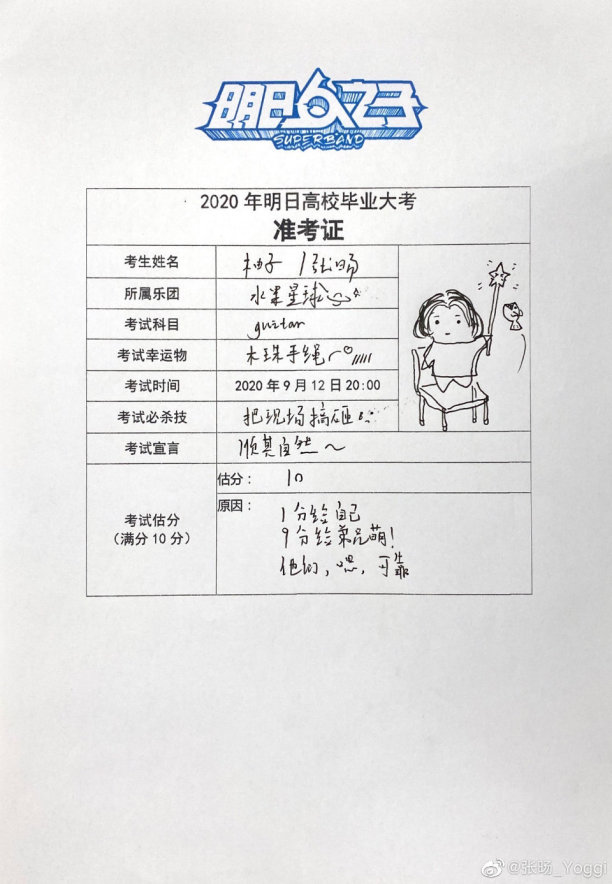 明日之子
SUPERBAND
2020年明日高校毕业大考
准考证
考生姓名 柚子 / 张旸
所属乐团 水果星球
考试科目 guitar
考试幸运物 木珠手绳
考试时间 2020年9月12日20:00
考试必杀技 把现场搞砸
考试宣言 顺其自然~
考试估分
(满分10分)
估分: 10
原因: 1分给自己
9分给弟兄萌!
他们,嗯,可靠
@张旸_Yoggi